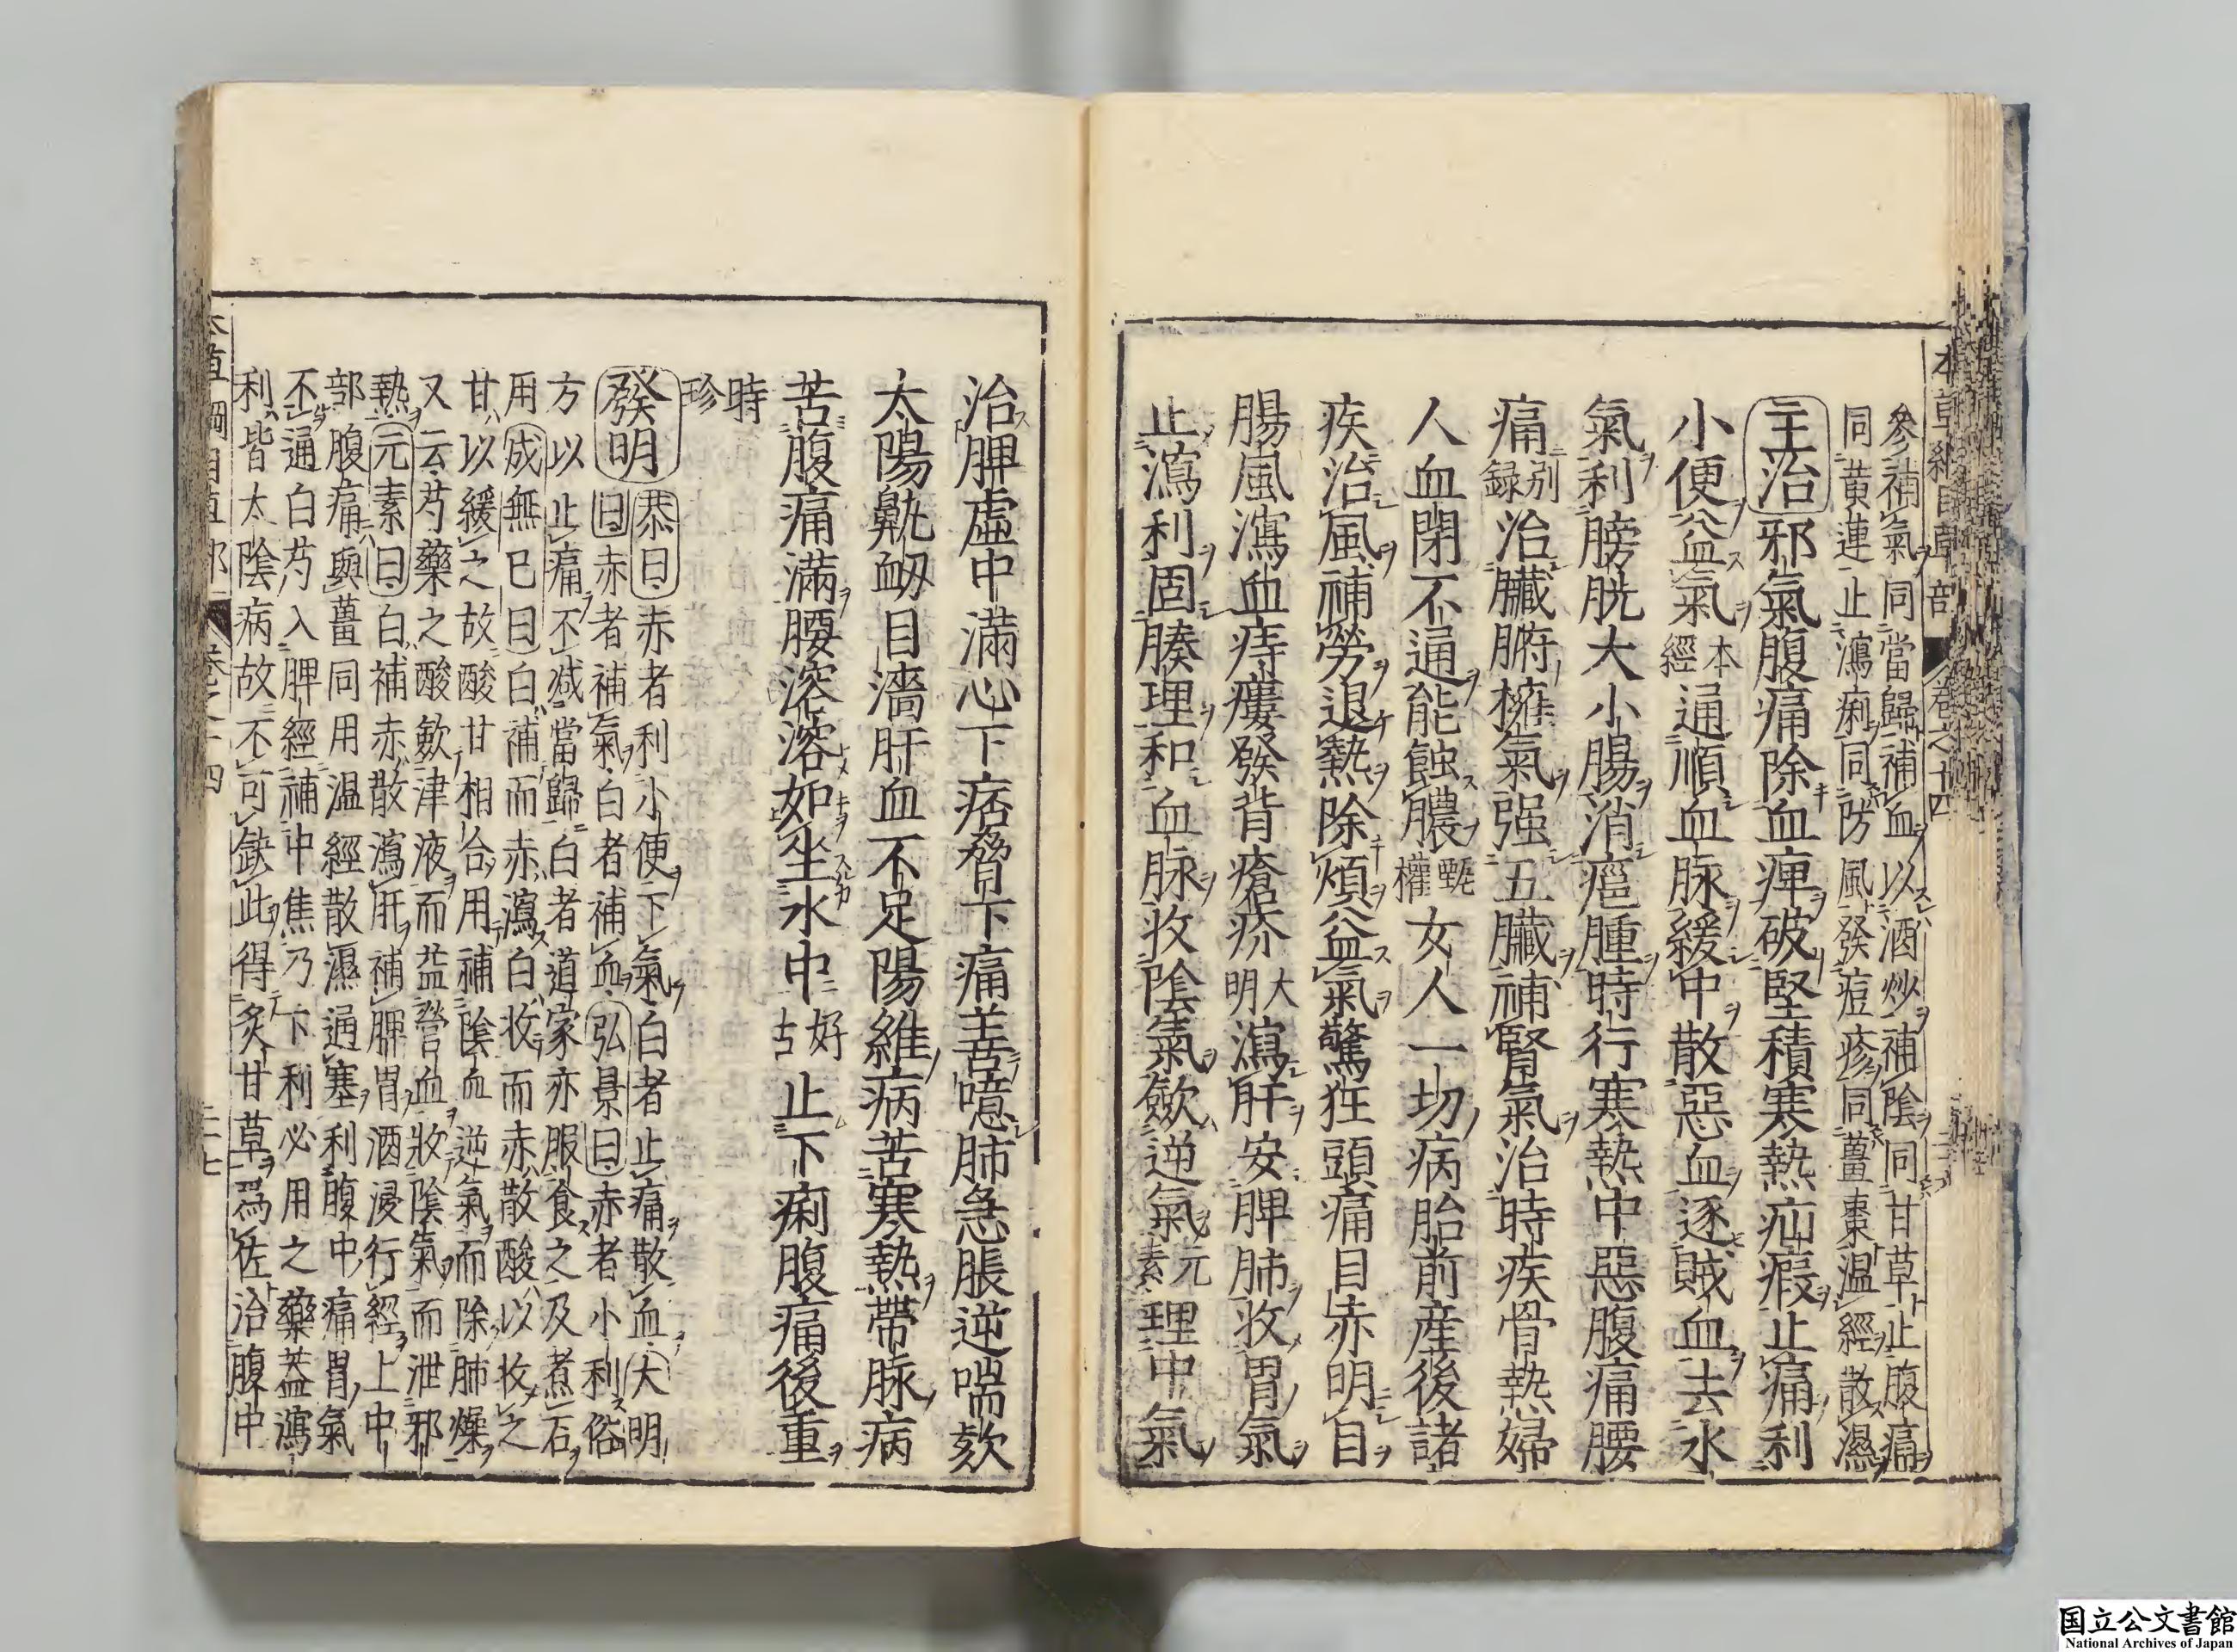 本草綱目草部 卷之十四
參補氣同當歸補血以酒炒補陰同甘草止腹痛
同黄連止瀉痢同防風發痘疹同薑棗溫經散濕
主治邪氣腹痛除血痺破堅積寒熱疝瘕止痛利
小便益氣本經通順血脉緩中散惡血逐賊血去水
氣利膀胱大小腸消癰腫時行寒熱中惡腹痛腰
痛别録治臟腑擁氣强五臟補腎氣治時疾骨熱婦
人血閉不通能蝕膿甄權女人一切病胎前産後諸
疾治風補勞退熱除煩益氣驚狂頭痛目赤明目
腸風瀉血痔瘻發背瘡疥大明瀉肝安脾肺收胃氣
止瀉利固腠理和血脉收陰氣斂逆氣元素理中氣
治脾虛中滿心下痞脅下痛善噫肺急脹逆喘欬
太陽鼽衂目濇肝血不足陽維病苦寒熱帶脉病
苦腹痛滿腰溶溶如坐水中好古止下痢腹痛後重
時珍
發明恭曰赤者利小便下氣白者止痛散血大明
曰赤者補氣白者補血弘景曰赤者小利俗
方以止痛不減當歸白者道家亦服食之及煮石
用成無已曰白補而赤瀉白收而赤散酸以收之
甘以緩之故酸甘相合用補陰血逆氣而除肺燥
又云芍藥之酸斂津液而益營血收陰氣而泄邪
熱元素曰白補赤散瀉肝補脾胃酒浸行經上中
部腹痛與薑同用溫經散濕通塞利腹中痛胃氣
不通白芍入脾經補中焦乃下利必用之藥蓋瀉
利皆太陰病故不可缺此得炙甘草爲佐治腹中
本草綱目草部 卷之十四 二十七
国立公文書館
National Archives of Japan